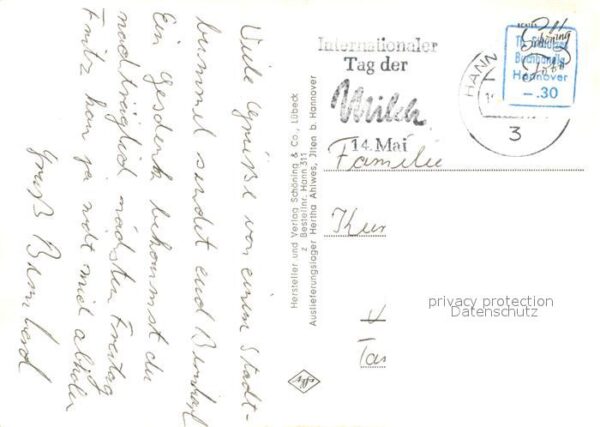 Viele Grüße von einem Stadt-
bummel sendet euch Bernhard
Ein Geschenk bekommst du
nachträglich nächsten Freitag
Fritz kann ja nicht mit abholen
Gruß Bernhard
Hersteller und Verlag Schöning & Co., Lübeck
z Bestellnr. Hann 311
Auslieferungslager Hertha Ahlwes, Ilten b. Hannover
Internationaler
Tag der
Milch
14. Mai
HANN
3
Schöning
Buchhandlg
Hannover
–.30
Familie
Kur
Tan
privacy protection
Datenschutz